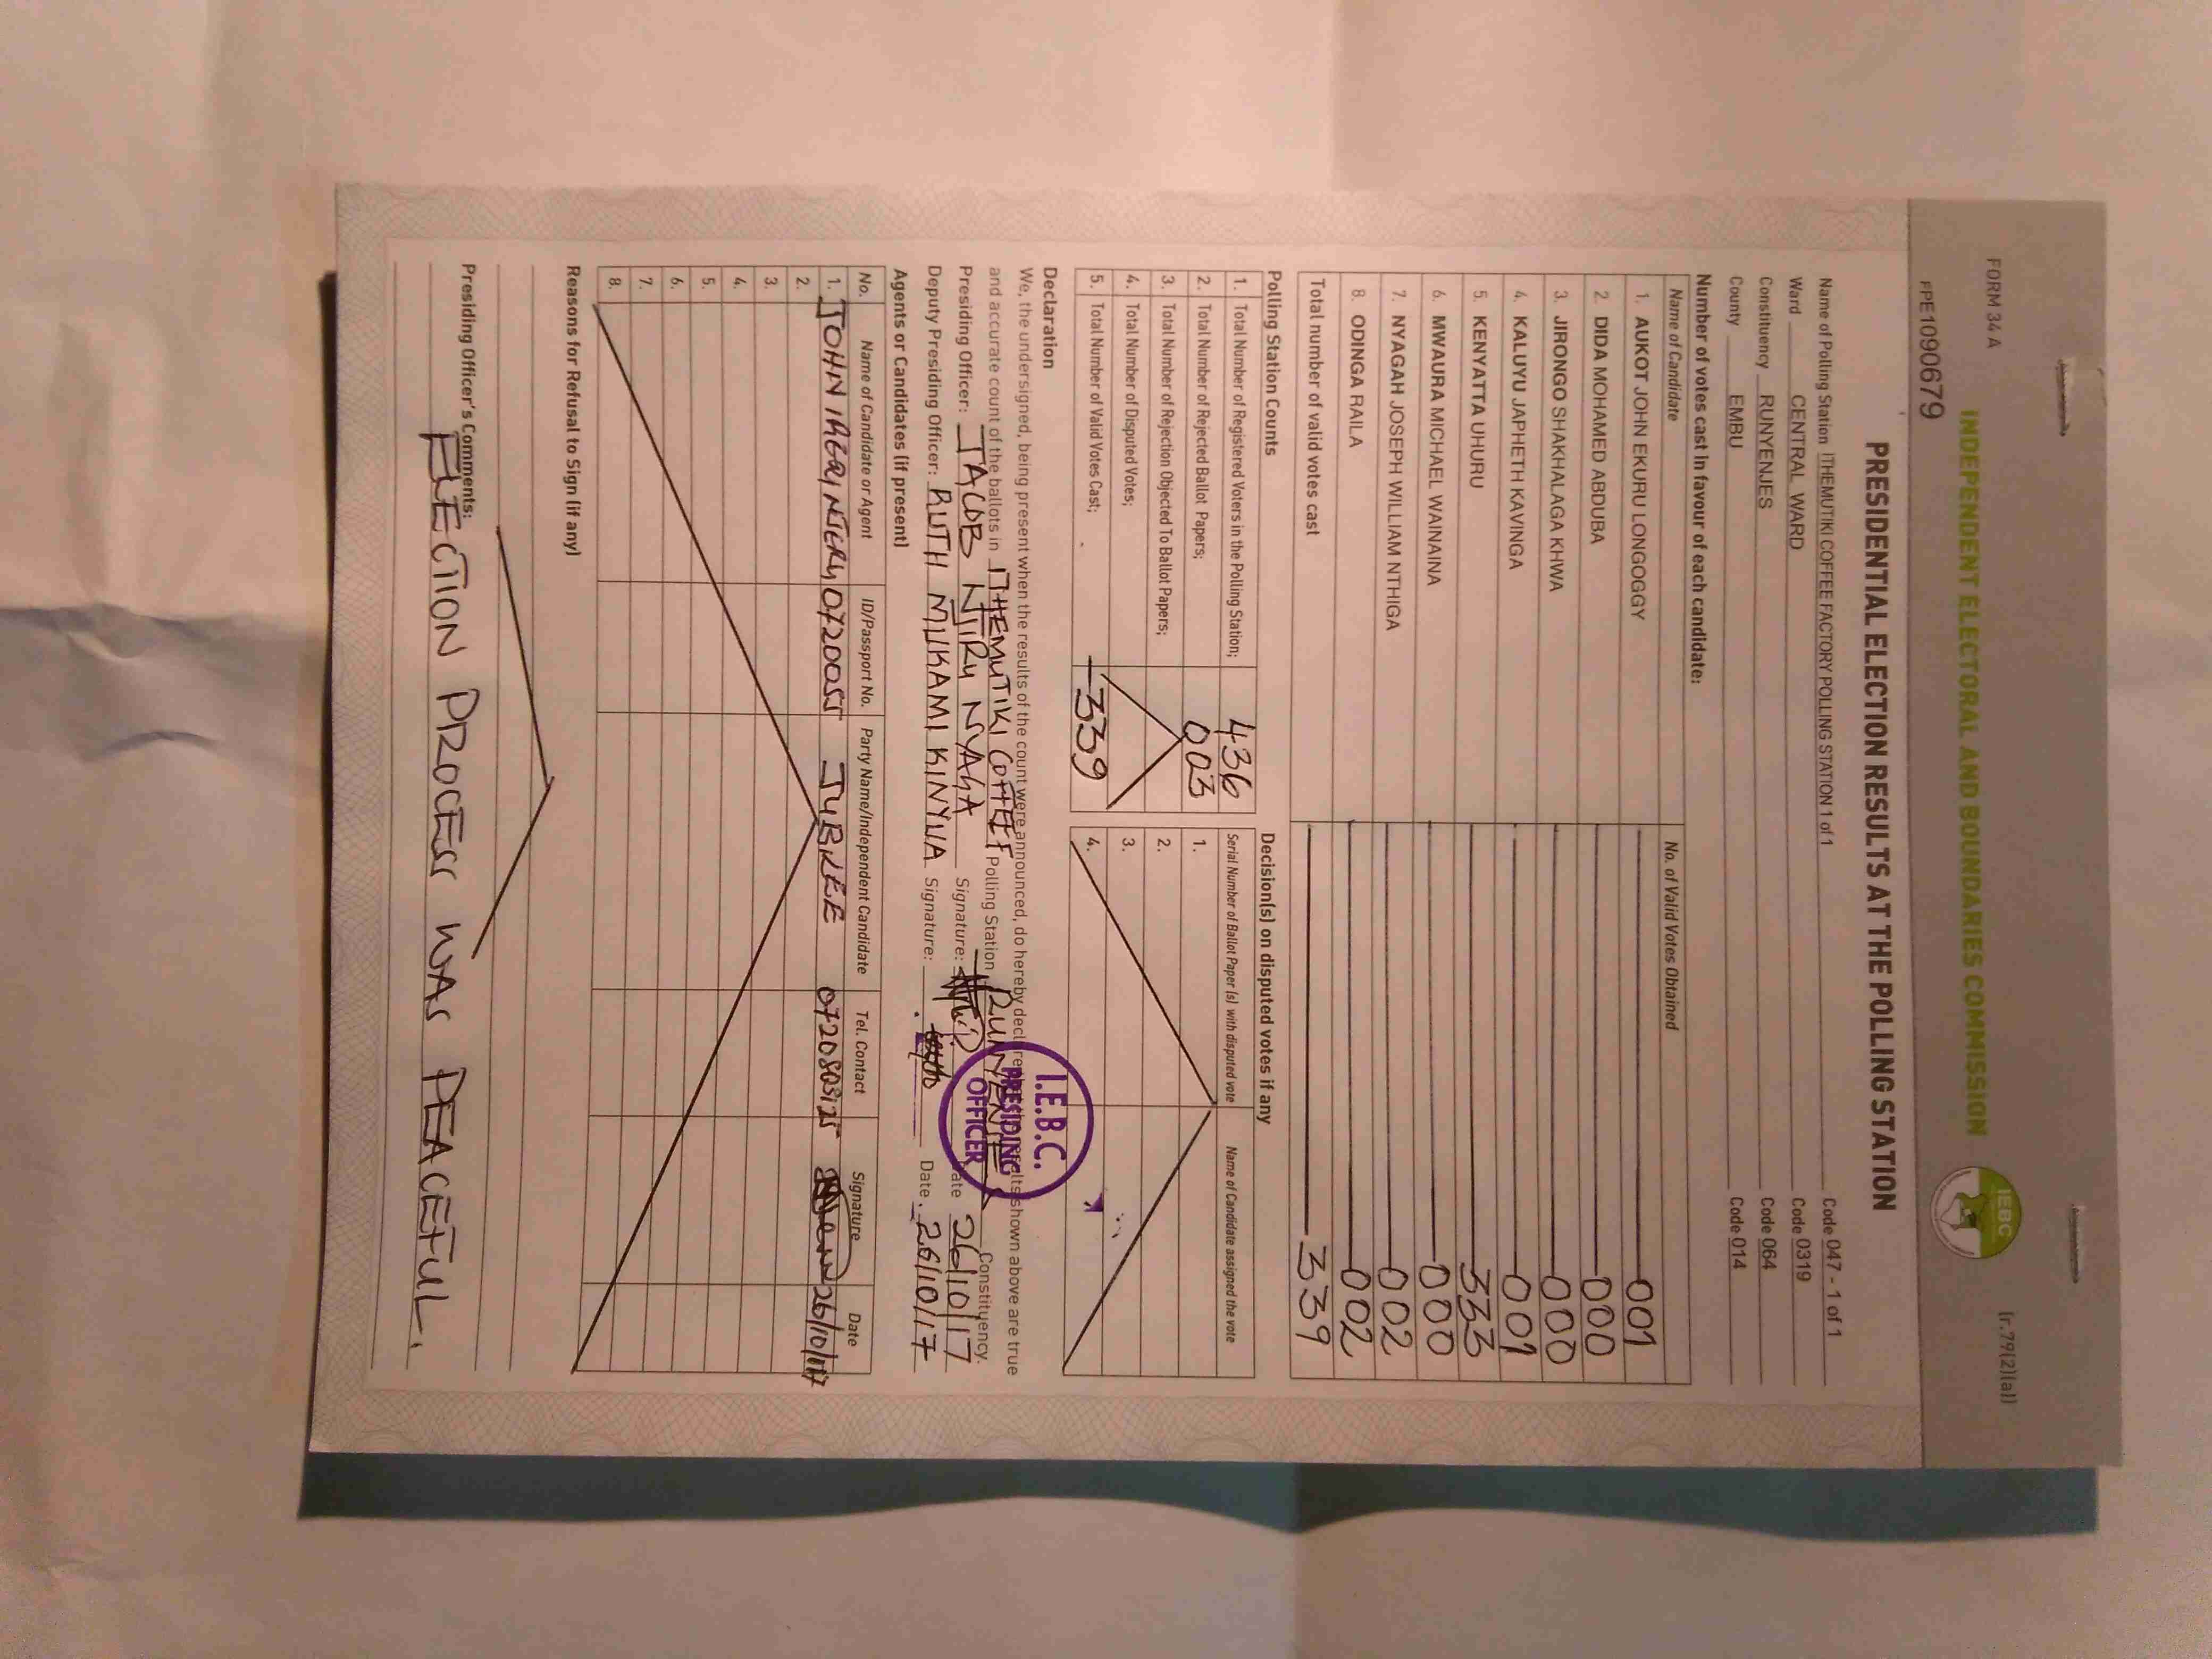 FORM 34 A
[r.79(2)(a)]
INDEPENDENT ELECTORAL AND BOUNDARIES COMMISSION
IEBC
PE1090679
PRESIDENTIAL ELECTION RESULTS AT THE POLLING STATION
Name of Polling Station ITHEMUTIKI COFFEE FACTORY POLLING STATION 1 of 1 Code 047 - 1 of 1
Ward CENTRAL WARD Code 0319
Constituency RUNYENJES Code 064
County EMBU Code 014
Number of votes cast in favour of each candidate:
Name of Candidate No. of Valid Votes Obtained
1. AUKOT JOHN EKURU LONGOGGY 001
2. DIDA MOHAMED ABDUBA 000
3. JIRONGO SHAKHALAGA KHWA 000
4. KALUYU JAPHETH KAVINGA 001
5. KENYATTA UHURU 333
6. MWAURA MICHAEL WAINAINA 000
7. NYAGAH JOSEPH WILLIAM NTHIGA 002
8. ODINGA RAILA 002
Total number of valid votes cast 339
Polling Station Counts
1. Total Number of Registered Voters in the Polling Station; 436
2. Total Number of Rejected Ballot Papers; 003
3. Total Number of Rejection Objected To Ballot Papers;
4. Total Number of Disputed Votes;
5. Total Number of Valid Votes Cast; 339
Decision(s) on disputed votes if any
Serial Number of Ballot Paper (s) with disputed vote Name of Candidate assigned the vote
1.
2.
3.
4.
Declaration
We, the undersigned, being present when the results of the count were announced, do hereby declare that the results shown above are true
and accurate count of the ballots in ITHEMUTIKI COFFEE Polling Station RUNYENJES Constituency.
Presiding Officer: JACOB NJIRU NYAGA Signature: Date 26/10/17
Deputy Presiding Officer: RUTH MUKAMI KINYUA Signature: Date 26/10/17
I.E.B.C.
PRESIDING
OFFICER
Agents or Candidates (if present)
No. Name of Candidate or Agent ID/Passport No. Party Name/Independent Candidate Tel. Contact Signature Date
1. JOHN 0720055 JUBILEE 26/10/17
2.
3.
4.
5.
6.
7.
8.
Reasons for Refusal to Sign (if any)
Presiding Officer's Comments:
ELECTION PROCESS WAS PEACEFUL.